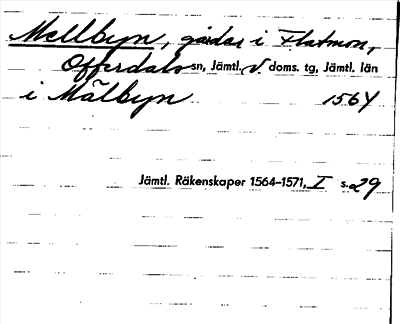 Mellbyn, gårdar i Flatmon,
Offerdals sn, Jämtl. V. doms. tg, Jämtl. län
i Mälbyn 1564
Jämtl. Räkenskaper 1564–1571, I s. 29